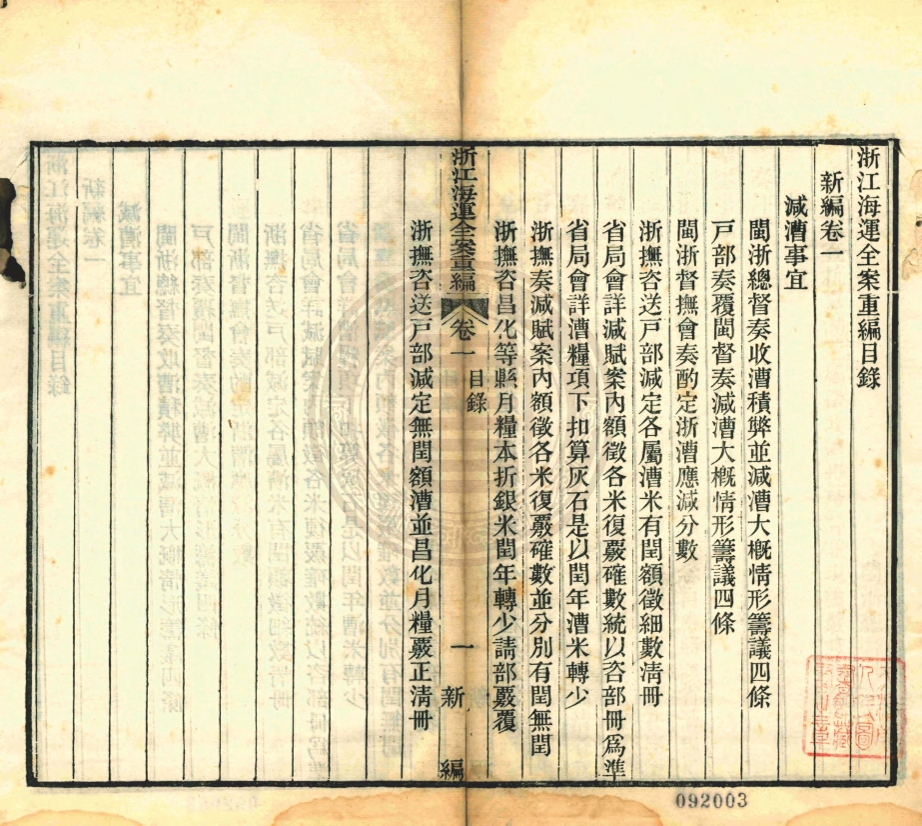 浙江海運全案重編目錄
新編卷一
減漕事宜
閩浙總督奏收漕積弊並減漕大槪情形籌議四條
戸部奏覆閩督奏減漕大槪情形籌議四條
閩浙督撫會奏酌定浙漕應減分數
浙撫咨送戸部減定各屬漕米有閏額徵細數淸冊
省局會詳減賦案內額徵各米復覈確數統以咨部冊爲準
省局會詳漕糧項下扣算灰石是以閏年漕米轉少
浙撫奏減賦案內額徵各米復覈確數並分別有閏無閏
浙撫咨昌化等縣月糧本折銀米閏年轉少請部覈覆
浙江海運全案重編
卷一
目錄
一
新編
浙撫咨送戸部減定無閏額漕並昌化月糧覈正淸冊
092003